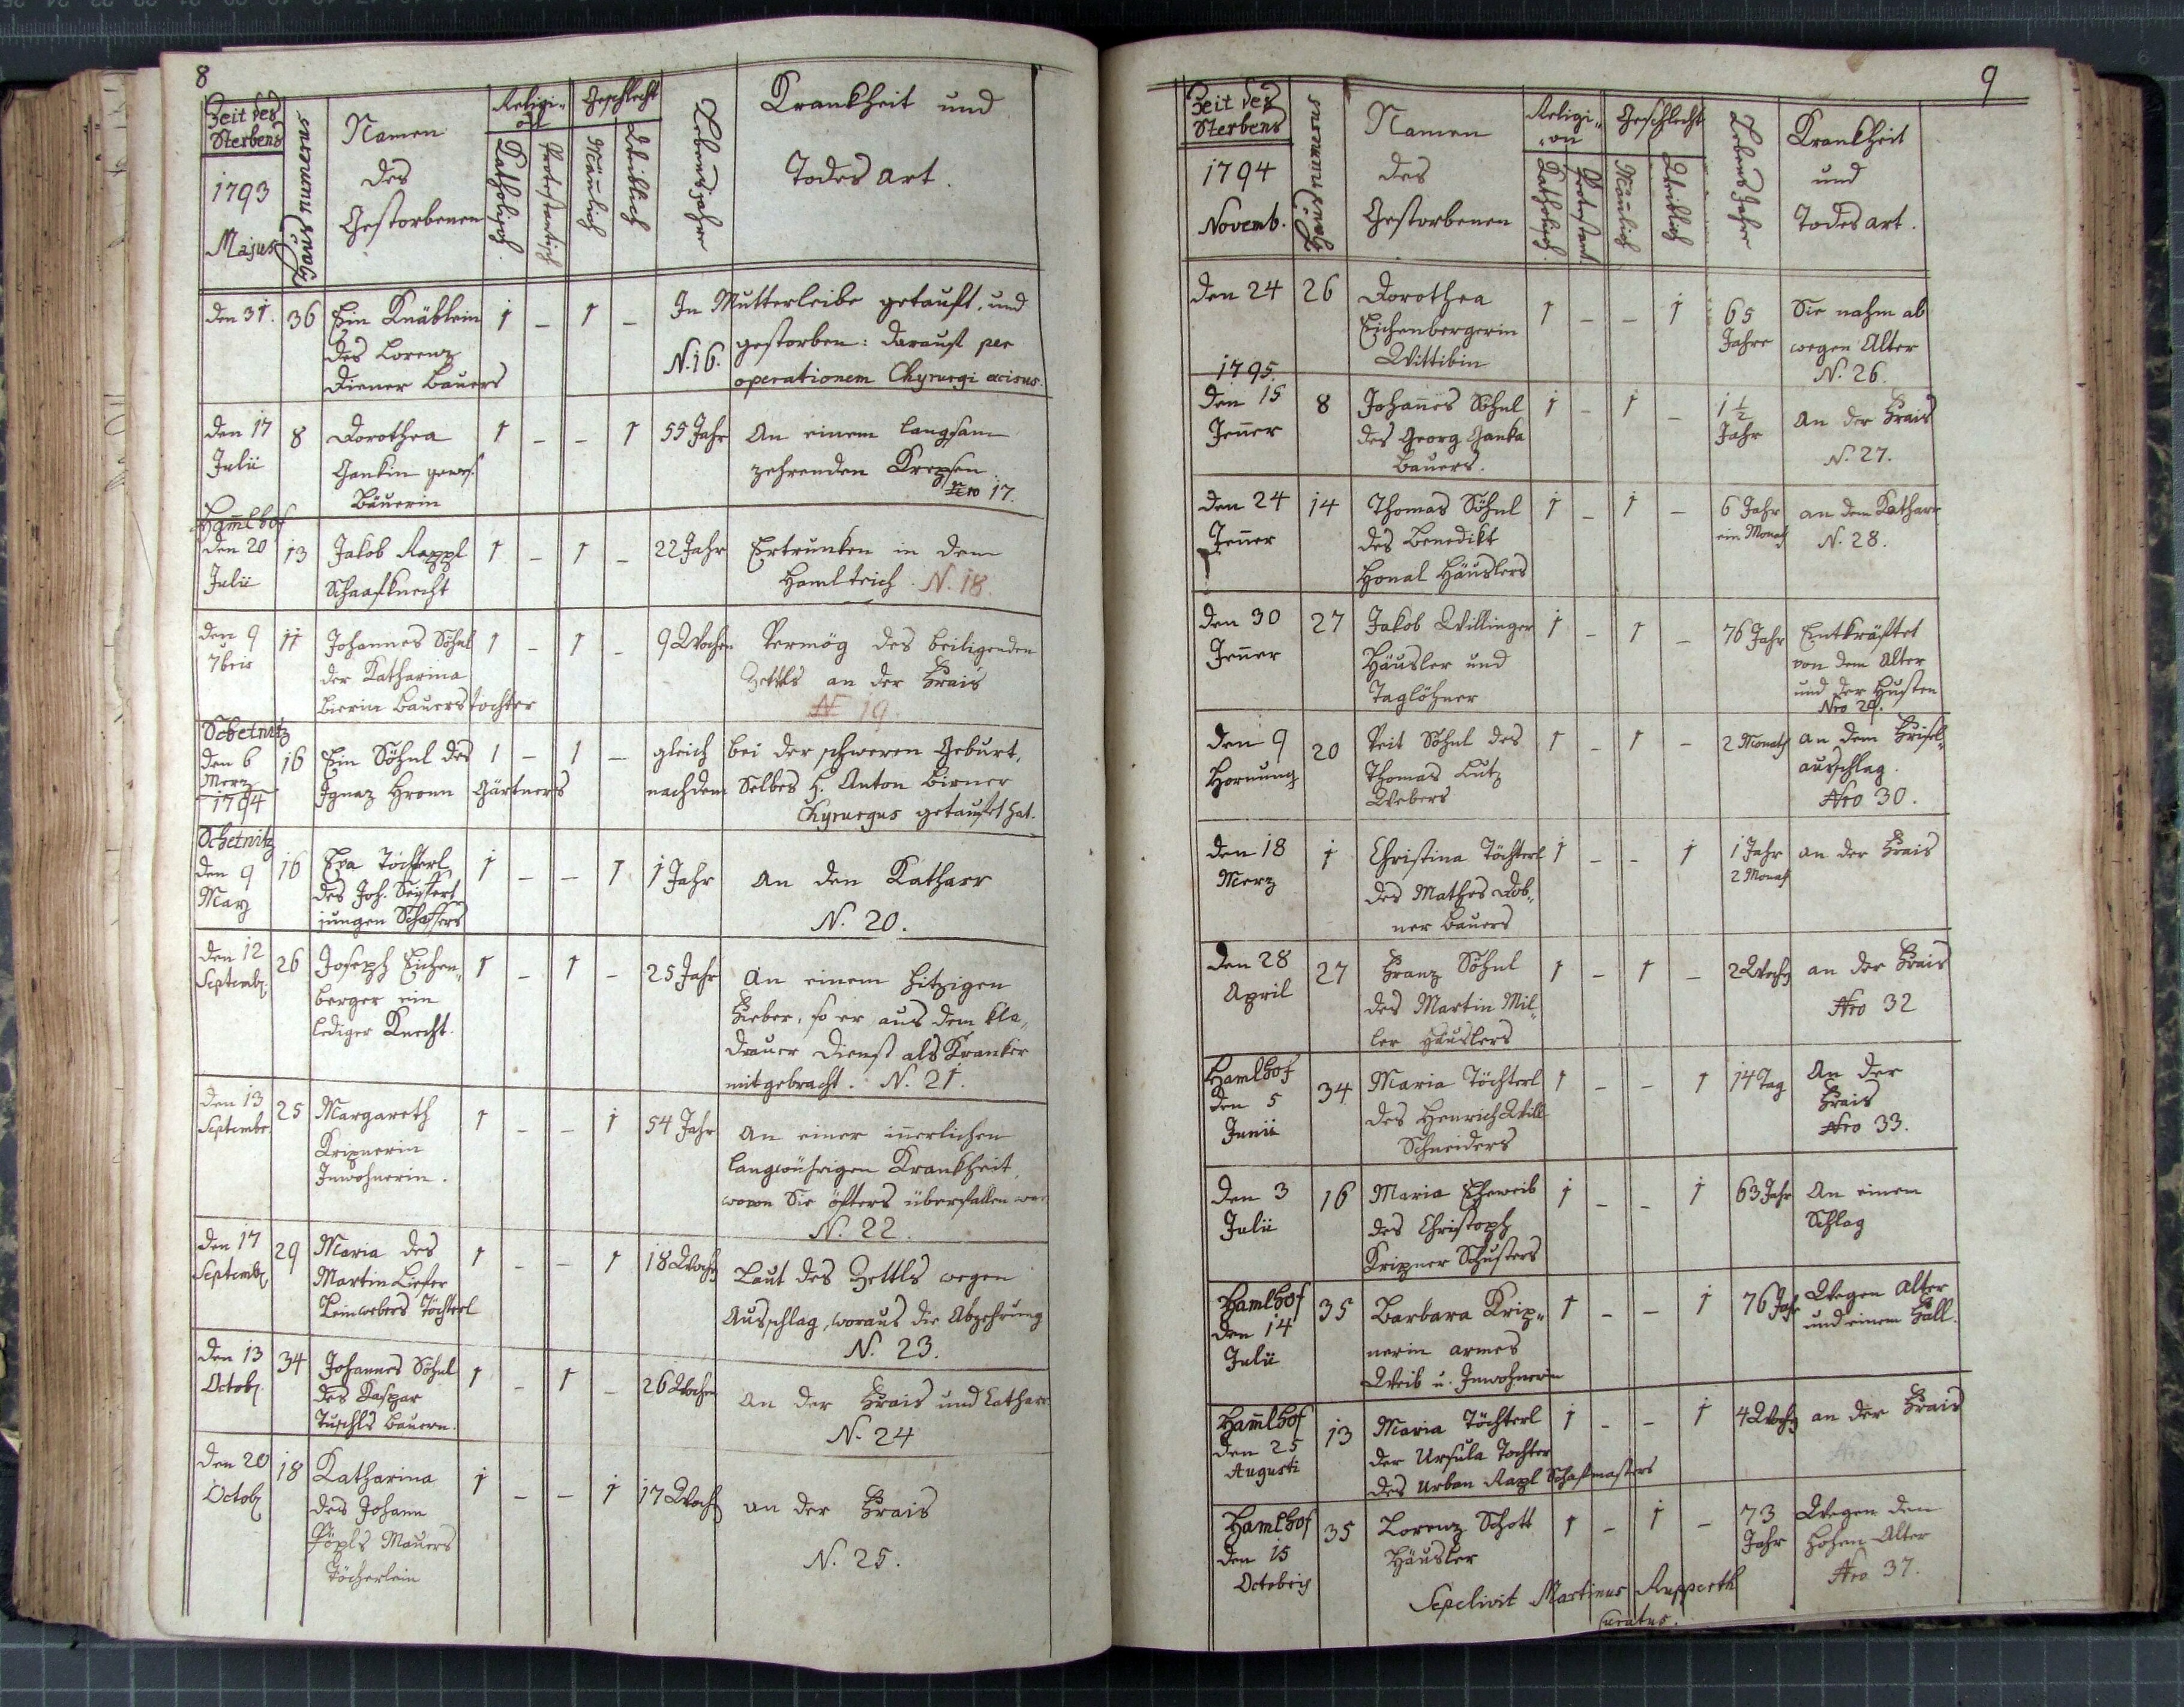 8
Zeit des Sterbens
1793
Majus
Haus numerus
Namen des Gestorbenen
Religion
Katholisch
Protestantisch
Geschlecht
Mänlich
Weiblich
Lebensjahre
Krankheit und
Todes art.
den 31. 36 Ein Knäblein 1 – 1 – In Mutterleibe getauft, und
des Lorenz gestorben: darauf per
Diener Bauers N. 16. operationem Chyrurgi
den 17 8 Dorothea 1 – – 1 55 Jahr An einem langsam
Julii Gankin zehrenden
Bäuerin Nro 17.
Hamlhof
den 20 13 Jakob Rappl 1 – 1 – 22 Jahr Ertrunken in dem
Julii Schaafknecht Hamlteich. N. 18.
den 9 11 Johannes Söhnl 1 – 1 – 9 Wochen Vermög des beiligenden
7bris der Katharina Zettls an der Frais
Bierin Bauers tochter 19
Schetnitz
den 6 16 Ein Söhnl des 1 – 1 – gleich bei der schweren Geburt,
Merz Ignaz Gärtners nachdem Selbes H. Anton Birner
1794 Chyrurgus getauft hat.
Schetnitz
den 9 16 Eva Töchterl 1 – – 1 1 Jahr An den Katharr
May des Joh. Seiffert
jungen Schaffers N. 20.
den 12 26 Joseph Eichen- 1 – 1 – 25 Jahr An einem hitzigen
Septemb. berger ein Fieber, so er aus dem Kla-
lediger Knecht. drauer Dienst als Kranker
mitgebracht. N. 21.
den 13 25 Margareth 1 – – 1 54 Jahr An einer inerlichen
Septembr. Kripnerin langwührigen Krankheit,
Inwohnerin. Sie öfters überfallen war
N. 22.
den 17 29 Maria des 1 – – 1 18 Woch Laut des Zettls wegen
Septemb. Martin Liefer Ausschlag, woraus die Abzehrung
Leinwebers Töchterl N. 23.
den 13 34 Johannes Söhnl 1 – 1 – 26 Wochen An der Frais und Catharr
Octob. des Kaspar
Tuschls Bauern. N. 24
den 20 18 Katharina 1 – – 1 17 Woch an der Frais
Octob. des Johann
Pöpls Mauers N. 25.
Töcherlein
9
Zeit des Sterbens
1794
Novemb.
Haus numerus
Namen des Gestorbenen
Religion
Katholisch.
Protestant.
Geschlecht
Mänlich
Weiblich
Lebens Jahre
Krankheit und Todes art.
den 24 26 Dorothea 1 – – 1 65 Sie nahm ab
Eichenbergerin Jahre wegen Alter
Wittibin N. 26.
1795.
den 15 8 Johanes Söhnl 1 – 1 – 1 1/2 An der Frais
Jener des Georg Ganka Jahr
Bauers. N. 27.
den 24 14 Thomas Söhnl 1 – 1 – 6 Jahr an dem Katharr
Jener des Benedikt ein Monat N. 28.
Honal Häuslers
den 30 27 Jakob Willinger 1 – 1 – 76 Jahr Entkräftet
Jener Häusler und von dem Alter
Taglöhner und der Husten
Nro 29.
den 9 20 Veit Söhnl des 1 – 1 – 2 Monath an dem Frisel-
Hornung Thomas Lutz ausschlag.
Webers Nro 30.
den 18 1 Christina Töchterl 1 – – 1 1 Jahr an der Frais
Merz des Mathes Dob- 2 Monat
ner Bauers
den 28 27 Franz Söhnl 1 – 1 – 2 Woch an der Frais
April des Martin Mil-
ler Häuslers Nro 32
Hamlhof
den 5 34 Maria Töchterl 1 – – 1 14 Tag An der
Junii des Henrich Will Frais
Schneiders Nro 33.
den 3 16 Maria Eheweib 1 – – 1 63 Jahr An einen
Julii des Christoph Schlag
Kripner Schusters
Hamlhof
den 14 35 Barbara Krip- 1 – – 1 76 Jahr Wegen Alter
Julii nerin armes und einem Fall.
Weib u. Inwohnerin
Hamlhof
den 25 13 Maria Töchterl 1 – – 1 4 Woch an der Frais
Augusti der Ursula Tochter
des Urban Rapl Schafmasters
Hamlhof
den 15 35 Lorenz Schott 1 – 1 – 73 Wegen dem
Octobris Häusler Jahr hohen Alter
Nro 37.
Sepelivit Martinus Rupperth
Curatus.